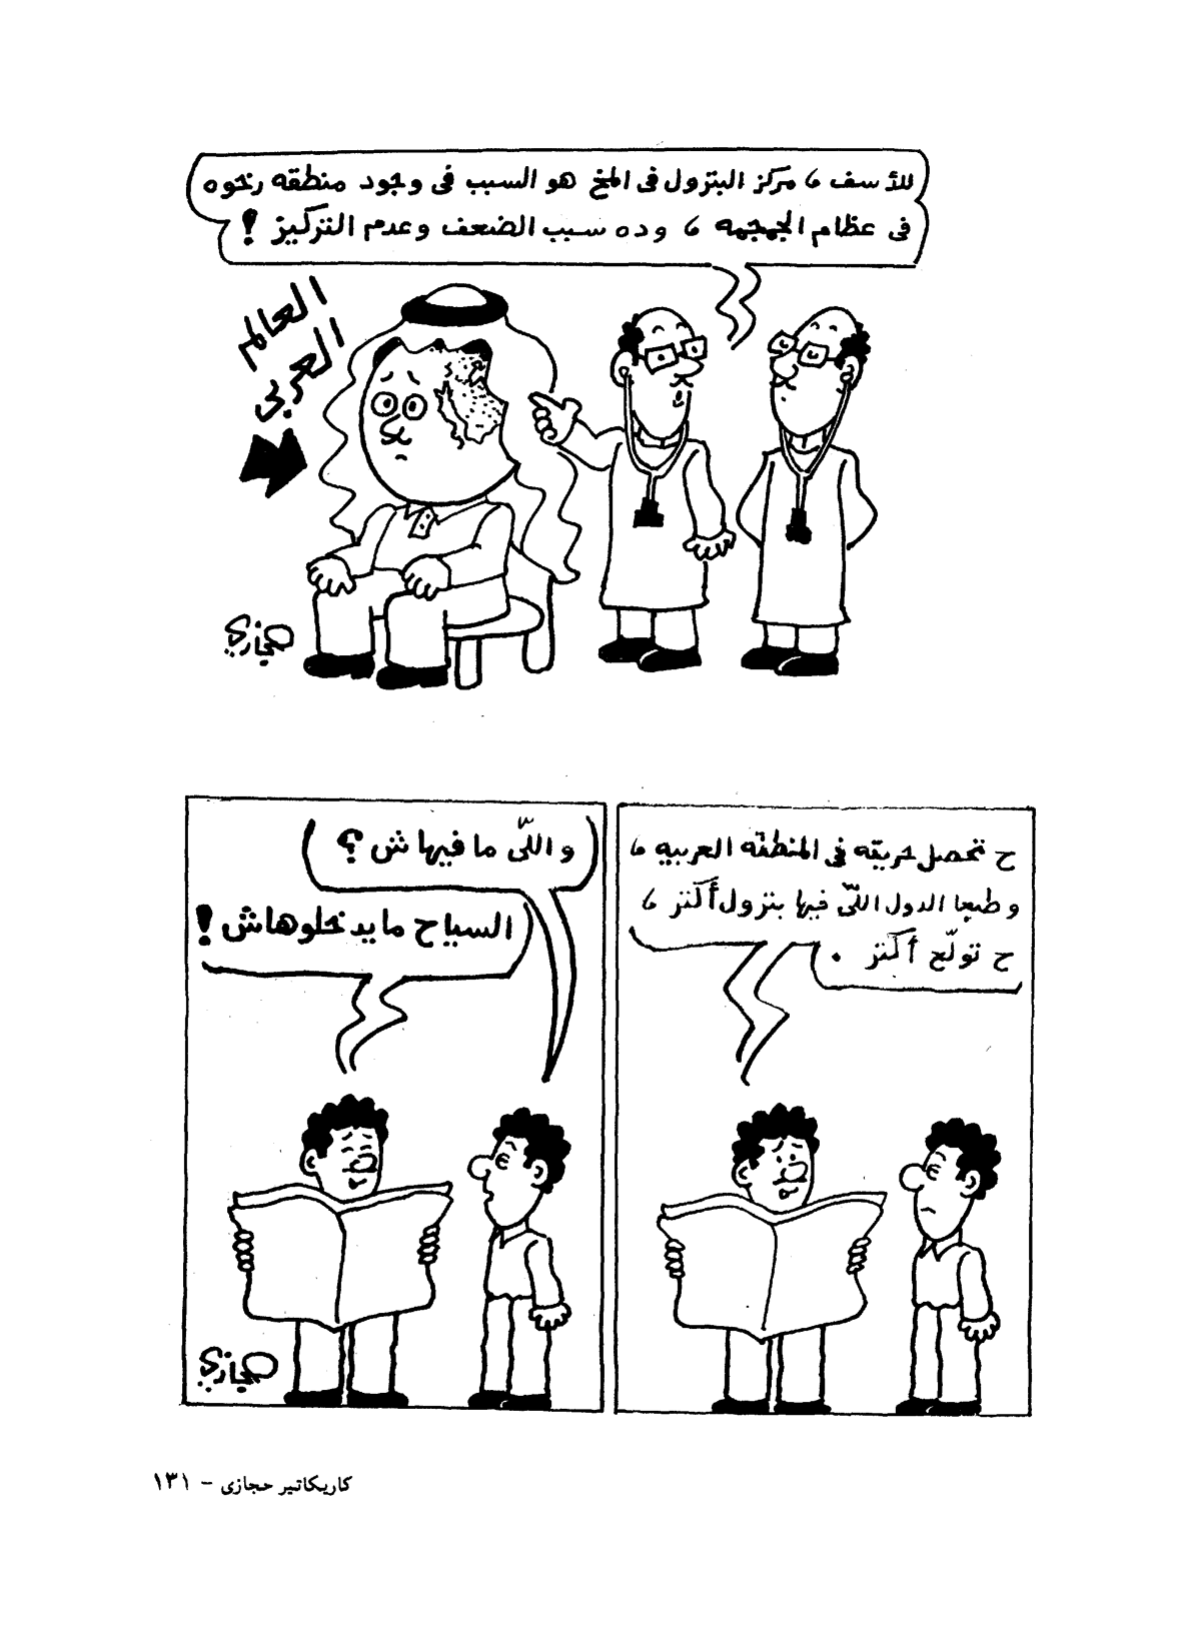 للأسف ، مركز البترول فى المخ هو السبب فى وجود منطقه رخوه
فى عظام الجمجمه ، وده سبب الضعف وعدم التركيز !
العالم
العربى
حجازي
ح تحصل حريقه فى المنطقه العربيه ،
وطبعا الدول اللّى فيها بترول أكتر ،
ح تولّع أكتر .
واللّى ما فيهاش ؟
السياح ما يدخلوهاش !
حجازي
كاريكاتير حجازى - ١٣١